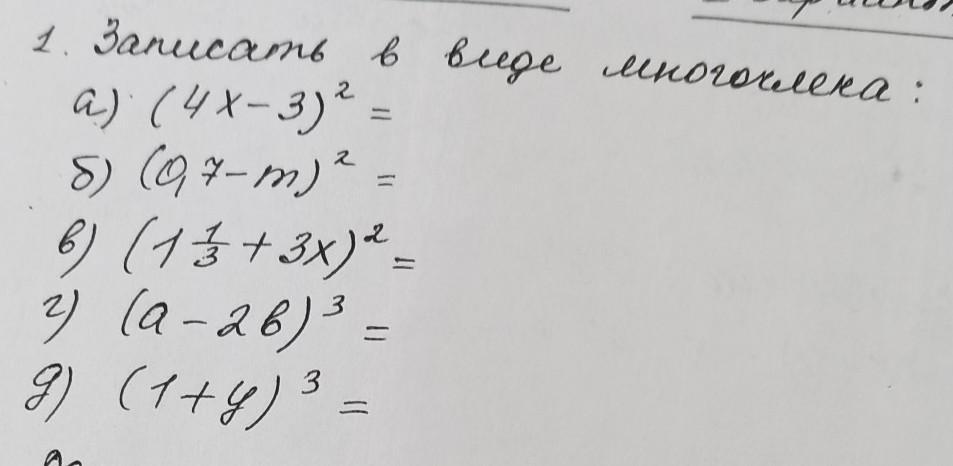 1. Записать в виде многочлена:
а) (4x-3)² =
б) (0,7-m)² =
в) (1 1/3 + 3x)² =
г) (a-2b)³ =
д) (1+y)³ =